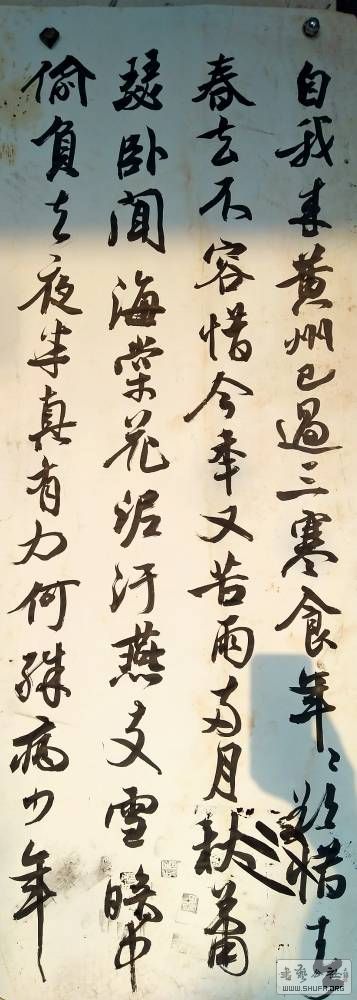 自我来黄州已過三寒食年〻欲惜春
春去不容惜今年又苦雨两月秋蕭
瑟卧聞海棠花泥汙燕支雪暗中
偷負去夜半真有力何殊病少年
WWW.SHUFA.ORG